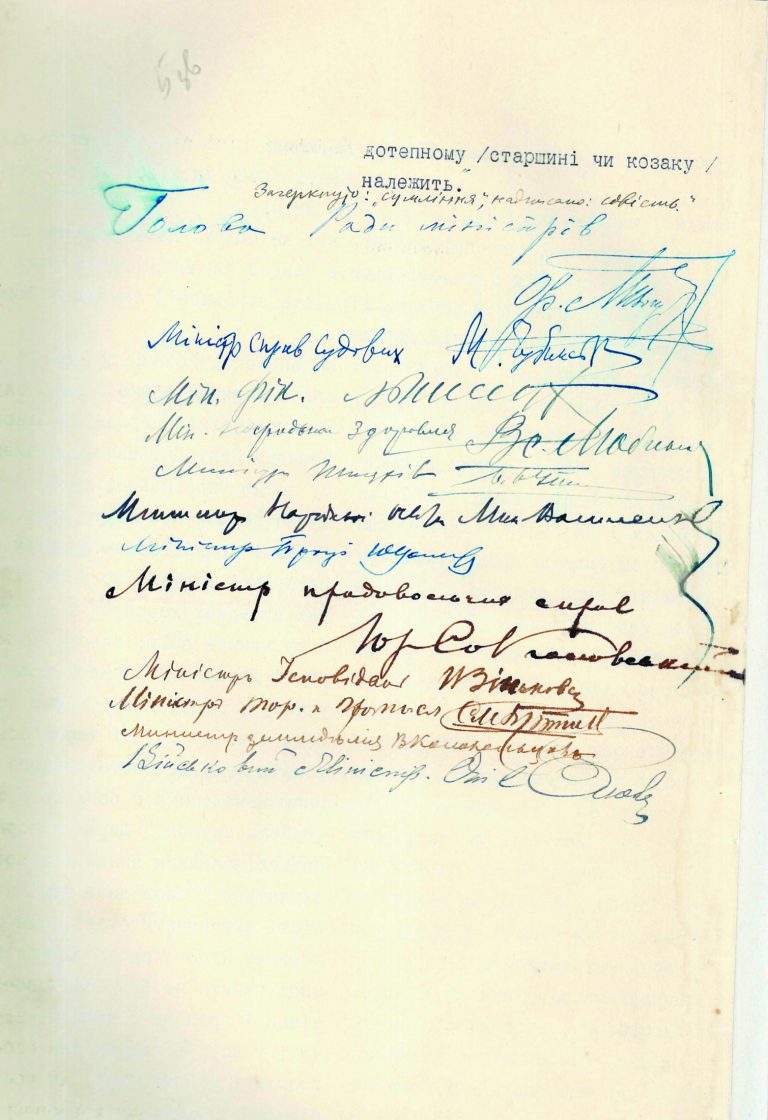 дотепному /старшині чи козаку /
належить."
Закреслено: "сумління"; надписано: совість."
Голова Ради міністрів
Ф. Лизогуб
Міністр Справ Судових М. Чубинський
Мін. фін. А. Ржепецький
Мін. Народнього Здоровля Вс. Любинський
Министр Шляхів Б. Бутенко
Министр Народньої освіти Мик. Василенко
Міністр Праці Ю. Вагнер
Міністр продовольчих справ
Юр. Соколовський
Міністръ Ісповіданя В. Зіньковський
Міністръ Тор. и Промысл.
Министр земледѣлія В. Колокольцовъ
Військовий Міністр.